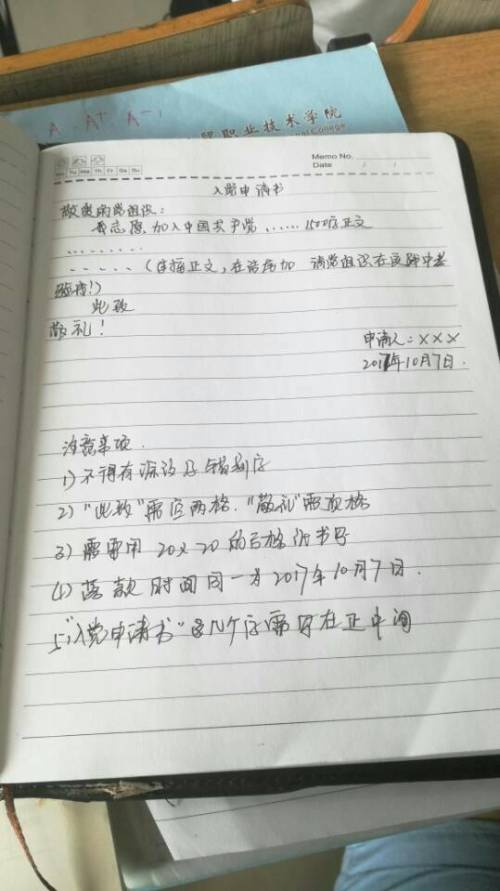 A A+ A-
职业技术学院
Memo No.
Mo Tu We Th Fr Sa Su
Date / /
入党申请书
敬爱的党组织：
我志愿加入中国共产党，……1500字正文
………
……（连接正文，在结尾加 请党组织在实践中考
验我!）
此致
敬礼！
申请人：×××
2017年10月7日.
注意事项.
1)不得有涂改及错别字
2)"此致"需空两格."敬礼"需顶格
3)需要用20×20的方格附书写
4)落款时间同一为2017年10月7日.
5."入党申请书"这几个字需写在正中间